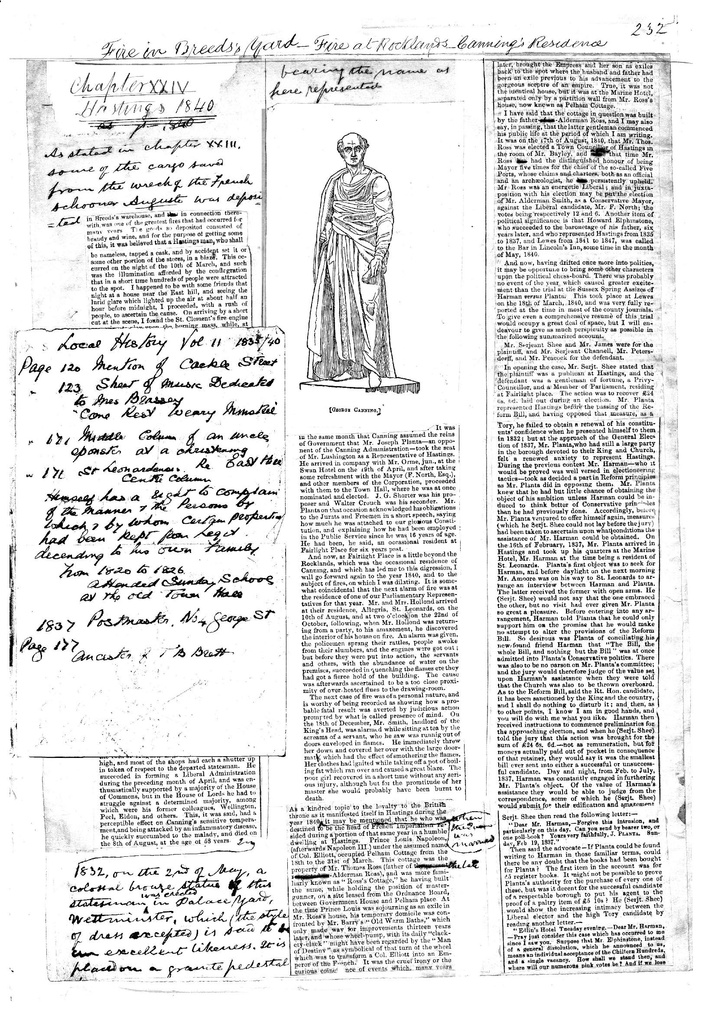 232
Fire in Breeds's Yard - Fire at Rocklands - Canning's Residence
Chapter XXIV
Hastings 1840
As stated in chapter XXIII.
some of the cargo saved
from the wreck of the French
schooner Auguste was deposi
=ted in Breeds's warehouse, and in connection there-
with was one of the greatest fires that had occurred for
many years. The goods so deposited consisted of
brandy and wine, and for the purpose of getting some
of this, it was believed that a Hastings man, who shall
be nameless, tapped a cask, and by accident set it or
some other portion of the stores, in a blaze. This oc-
curred on the night of the 10th of March, and such
was the illumination afforded by the conflagration
that in a short time hundreds of people were attracted
to the spot. I happened to be with some friends that
night at a house near the East hill, and seeing the
lurid glare which lighted up the air at about half an
hour before midnight, I proceeded, with a rush of
people, to ascertain the cause. On arriving by a short
cut at the scene, I found the St. Clement's fire engine
Local History Vol 11
Page 120 Mention of Street
" 123 Sheet of Music Dedicated
to Mrs
"Come Rest Weary
" 171 Middle Column of an uncle
sponsor at a christening
" 171 St Leonardensis. Re East Hill
Centre Column
Himself has a right to complain
of the Manner & the Persons by
which & by whom Certain properties
had been kept from legit
decending to his own Family
from 1820 to 1826
attended Sunday School
at the old Town Hall
1837 Postmaster, George St
Page 177
high, and most of the shops had each a shutter up
in token of respect to the departed statesman. He
succeeded in forming a Liberal Administration
during the preceding month of April, and was en-
thusiastically supported by a majority of the House
of Commons, but in the House of Lords he had to
struggle against a determined majority, among
which were his former colleagues, Wellington,
Peel, Eldon, and others. This, it was said, had a
perceptible effect on Canning's sensitive tempera-
ment, and being attacked by an inflammatory disease,
he quickly succumbed to the malady, and died on
the 8th of August, at the age of 58 years
1832, on the 2nd of May, a
colossal bronze statue of this
statesman was erected in Palace Yard,
Westminster, which (the style
of dress excepted) is said to be
an excellent likeness. It is
placed on a granite pedestal
bearing the name as
here represented
[GEORGE CANNING.]
It was
in the same month that Canning assumed the reins
of Government that Mr. Joseph Planta—an oppo-
nent of the Canning Administration—took the seat
of Mr. Lushington as a Representative of Hastings.
He arrived in company with Mr. Orme, jun., at the
Swan Hotel on the 18th of April, and after taking
some refreshment with the Mayor (F. North, Esq.),
and other members of the Corporation, proceeded
with them to the Town Hall, where he was at once
nominated and elected. J. G. Shorter was his pro-
poser and Walter Crouch was his seconder. Mr.
Planta on that occasion acknowledged his obligations
to the Jurats and Freemen in a short speech, saying
how much he was attached to our glorious Constitu-
tion, and explaining how he had been employed
in the Public Service since he was 16 years of age.
He had been, he said, an occasional resident at
Fairlight Place for six years past.
And now, as Fairlight Place is a little beyond the
Rocklands, which was the occasional residence of
Canning, and which has led me to this digression, I
will go forward again to the year 1840, and to the
subject of fires, on which I was dilating. It is some-
what coincidental that the next alarm of fire was at
the residence of one of our Parliamentary Represen-
tatives for that year. Mr. and Mrs. Hollond arrived
at their residence, Allegria, St. Leonards, on the
10th of August, and at two o'clock on the 22nd of
October, following, when Mr. Hollond was return-
ing from a party, to his amazement, he discovered
the interior of his house on fire. An alarm was given,
the policemen sprang their rattles, people awoke
from their slumbers, and the engines were got out;
but before they were put into action, the servants
and others, with the abundance of water on the
premises, succeeded in quenching the flames ere they
had got a fierce hold of the building. The cause
was afterwards ascertained to be a too close proxi-
mity of over-heated flues to the drawing-room.
The next case of fire was of a personal nature, and
is worthy of being recorded as showing how a pro-
bable fatal result was averted by judicious action
prompted by what is called presence of mind. On
the 18th of December, Mr. Smith, landlord of the
King's Head, was alarmed while sitting at tea by the
screams of a servant, who he saw was running out of
doors enveloped in flames. He immediately threw
her down, and covered her over with the large door-
mat, which had the effect of smothering the flames.
Her clothes had ignited while taking off a pot of boil-
ing fat which ran over and caused a great blaze. The
poor girl recovered in a short time without any seri-
ous injury, although but for the promptitude of her
master she would probably have been burnt to
death.
As a kindred topic to the loyalty to the British
throne as it manifested itself in Hastings during the
year 1840 it may be mentioned that he who was
destined to be the head of
sided during a portion of that same year in a humble
dwelling at Hastings. Prince Louis Napoleon,
(afterwards Napoleon III.) under the assumed name
of Col. Elliott, occupied Pelham Cottage from the
18th to the 31st of March. This cottage was the
property of Mr. Thomas Ross (father of the late
Alderman Ross), and was more fami-
liarly known as "Ross's Cottage," he having built
the same, while holding the position of master-
gunner, on a site leased from the Ordnance Board,
between Government House and Pelham place. At
the time Prince Louis was sojourning as an exile in
Mr. Ross's house, his temporary domicile was con-
fronted by Mr. Barry's "Old Warm Baths," which
only made way for improvements thirteen years
later, and whose wheel-pump, with its daily "clack-
ety-clack" might have been regarded by the "Man
of Destiny" as symbolical of that turn of the wheel
which was to transform a Col. Elliott into an Em-
peror of the French. It was the cruel irony or the
curious coincidence of events which, many years
later, brought the Empress and her son as exiles
back to the spot where the husband and father had
been an exile previous to his advancement to the
gorgeous sceptre of an empire. True, it was not
the identical house, but it was at the Marine Hotel,
separated only by a partition wall from Mr. Ross's
house, now known as Pelham Cottage.
I have said that the cottage in question was built
by the father of Alderman Ross, and I may also
say, in passing, that the latter gentleman commenced
his public life at the period of which I am writing.
It was on the 17th of August, 1840, that Mr. Thos.
Ross was elected a Town Councillor of Hastings in
the room of Mr. Bayley, and that time Mr.
Ross had the distinguished honour of being
Mayor five times for the chief of the so-called Five
Ports, whose claims and charters, both as an official
and an archæologist, he persistently upheld.
Mr. Ross was an energetic Liberal; and in juxta-
position with his election may be put the election
of Mr. Alderman Smith, as a Conservative Mayor,
against the Liberal candidate, Mr. F. North; the
votes being respectively 12 and 6. Another item of
political significance is that Howard Elphinstone,
who succeeded to the baronetage of his father, six
years later, and who represented Hastings from 1835
to 1837, and Lewes from 1841 to 1847, was called
to the Bar in Lincoln's Inn, some time in the month
of May, 1840.
And now, having drifted once more into politics,
it may be opportune to bring some other characters
upon the political chess-board. There was probably
no event of the year, which caused greater excite-
ment than the trial at the Sussex Spring Assizes of
Harman versus Planta. This took place at Lewes
on the 18th of March, 1840, and was very fully re-
ported at the time in most of the county journals.
To give even a comprehensive resumé of this trial
would occupy a great deal of space, but I will en-
deavour to give as much perplexity as possible in
the following summarized account.
Mr. Serjeant Shee and Mr. James were for the
plaintiff, and Mr. Serjeant Channell, Mr. Peters-
dorff, and Mr. Peacock for the defendant.
In opening the case, Mr. Serjt. Shee stated that
the plaintiff was a publican at Hastings, and the
defendant was a gentleman of fortune, a Privy-
Councillor, and a Member of Parliament, residing
at Fairlight place. The action was to recover £24
6s. 6d. laid out during an election. Mr. Planta
represented Hastings before the passing of the Re-
form Bill, and having opposed that measure, as a
Tory, he failed to obtain a renewal of his constitu-
ents' confidence when he presented himself to them
in 1832; but at the approach of the General Elec-
tion of 1837, Mr. Planta, who had still a large party
in the borough devoted to their King and Church,
felt a renewed anxiety to represent Hastings.
During the previous contest Mr. Harman—who it
would be proved was well versed in electioneering
tactics—took as decided a part in Reform principles
as Mr. Planta did in opposing them. Mr. Planta
knew that he had but little chance of obtaining the
object of his ambition unless Harman could be in-
duced to think better of Conservative principles
than he had previously done. Accordingly, before
Mr. Planta ventured to offer himself again, measures
(which he Serjt. Shee could not lay before the jury)
had been taken to ascertain upon what conditions the
assistance of Mr. Harman could be obtained. On
the 16th of February, 1837, Mr. Planta arrived in
Hastings and took up his quarters at the Marine
Hotel, Mr. Harman at the time being a resident of
St. Leonards. Planta's first object was to seek for
Harman, and before daylight on the next morning
Mr. Amoore was on his way to St. Leonards to ar-
range an interview between Harman and Planta.
The latter received the former with open arms. He
(Serjt. Shee) would not say that the one embraced
the other, but no visit had ever given Mr. Planta
so great a pleasure. Before entering into any ar-
rangement, Harman told Planta that he could only
support him on the promise that he would make
no attempt to alter the provisions of the Reform
Bill. So desirous was Planta of conciliating his
new-found friend Harman that "The Bill, the
whole Bill, and nothing but the Bill" was at once
admitted into Planta's Conservative politics. There
was also to be no parson on Mr. Planta's committee;
and the jury would therefore judge of the value set
upon Harman's assistance when they were told
that the Church was also to be thrown overboard.
As to the Reform Bill, said the Rt. Hon. candidate,
it has been sanctioned by the King and the country,
and I shall do nothing to disturb it; and then, as
to other points, I know I am in good hands, and
you will do with me what you like. Harman then
received instructions to commence preliminaries for
the approaching election, and when he (Serjt. Shee)
told the jury that this action was brought for the
sum of £24 6s. 6d.—not as remuneration, but for
moneys actually paid out of pocket in consequence
of that retainer, they would say it was the smallest
bill ever sent into either a successful or unsuccessful
candidate. Day and night, from Feb. to July,
1837, Harman was constantly engaged in furthering
Mr. Planta's object. Of the value of Harman's
assistance they would be able to judge from the
correspondence, some of which he (Serjt. Shee)
would submit for their edification and amusement.
Serjt. Shee then read the following letter:—
"Dear Mr. Harman,—Forgive this intrusion, and
particularly on this day. Can you send by bearer two, or
one poll book? Yours very faithfully, J. PLANTA. Sun-
day, Feb. 19, 1837."
Then said the advocate—If Planta could be found
writing to Harman in those familiar terms, could
there be any doubt that the books had been bought
for Planta? The first item in the account was for
45 register books. It might not be possible to prove
Planta's authority for the purchase of every one of
these, but was it decent for the successful candidate
of a respectable borough to put his agent to the
proof of a paltry item of £5 10s? He (Serjt. Shee)
would show the increasing intimacy between the
Liberal elector and the high Tory candidate by
reading another letter:—
"Edlin's Hotel Tuesday evening.—Dear Mr. Harman,
—Pray just consider this case which has occurred to me
since I saw you. Suppose that Mr. Elphinstone, instead
of a general dissolution, which he announced to us,
means an individual acceptance of the Chiltern Hundreds,
and a single vacancy. How shall we stand then, and
where will our numerous pink votes be? And if we lose